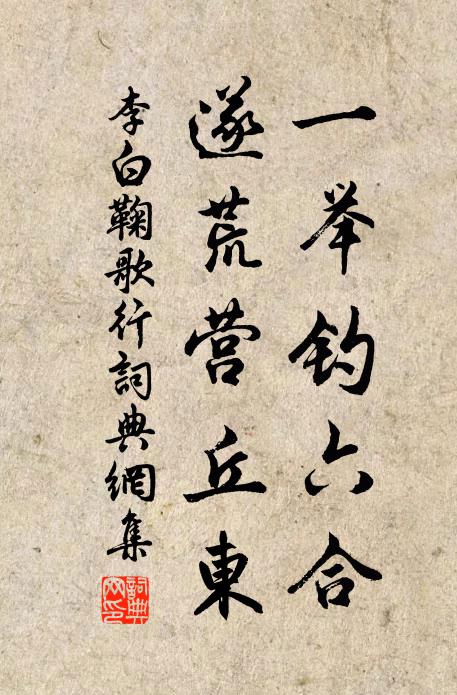 一举钓六合
遂荒营丘東
李白鞠歌行詞典網集
詞典网印